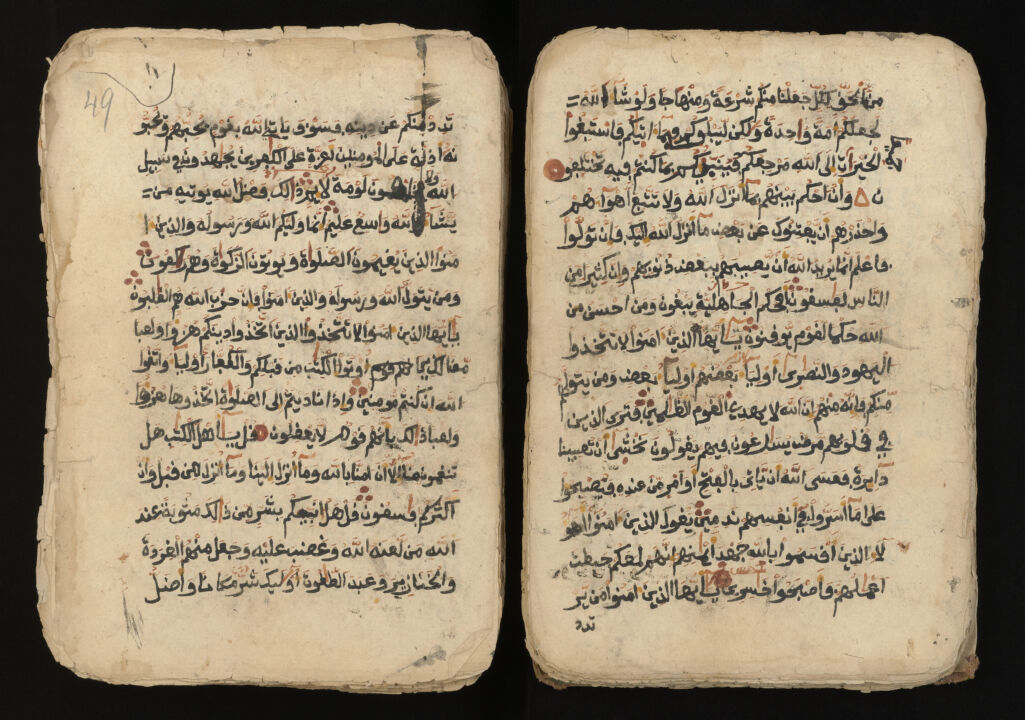 من الحق لكل جعلنا منكم شرعة ومنهاجا ولو شآ الله
لجعلكم امة واحدة ولكن ليبلوكم فى مآ اتيكم فاستبقوا
الخيرات الى الله مرجعكم فينبيكم بما كنتم فيه تختلفو
ن وان احكم بينهم بمآ انزل الله ولا تتبع اهوآ هم
واحذرهم ان يفتنوك عن بعض مآ انزل الله اليك فان تولوا
فاعلم انما يريد الله ان يصيبهم ببعض ذنوبهم وان كثيرا من
الناس لفسقون افحكم الجاهلية يبغون ومن احسن من
الله حكما لقوم يوقنون يآيها الذين امنوا لا تتخذوا
اليهود والنصرى اوليآ بعضهم اوليآ بعض ومن يتولهم
منكم فانه منهم ان الله لا يهدى القوم الظلمين فترى الذين
فى قلوبهم مرض يسارعون فيهم يقولون نخشى ان تصيبنا
دآيرة فعسى الله ان ياتى بالفتح او امر من عنده فيصبحوا
على مآ اسروا فى انفسهم ندمين يقول الذين امنوا اهو
لآ الذين اقسموا بالله جهد ايمنهم انهم لمعكم حبطت
اعملهم فاصبحوا خسرين يآيها الذين امنوا من ير
تدد
49
تدد منكم عن دينه فسوف ياتى الله بقوم يحبهم ويحبو
نه اذلة على المومنين اعزة على الكفرين يجهدون فى سبيل
الله ولا يخافون لومة لآيم ذالك فضل الله يوتيه من
يشآ والله واسع عليم انما وليكم الله ورسوله والذين ا
منوا الذين يقيمون الصلوة ويوتون الزكوة وهم ركعون
ومن يتول الله ورسوله والذين امنوا فان حزب الله هم الغلبون
يآيها الذين امنوا لا تتخذوا الذين اتخذوا دينكم هزوا ولعبا
من الذين اوتوا الكتب من قبلكم والكفار اوليآ واتقوا
الله ان كنتم مومنين واذا ناديتم الى الصلوة اتخذوها هزوا
ولعبا ذالك بانهم قوم لا يعقلون قل يآ اهل الكتب هل
تنقمون منآ الا ان امنا بالله ومآ انزل الينا ومآ انزل من قبل وان
اكثركم فسقون قل هل انبيكم بشر من ذالك مثوبة عند
الله من لعنه الله وغضب عليه وجعل منهم القردة
والخنازير وعبد الطغوت اوليك شر مكانا واضل